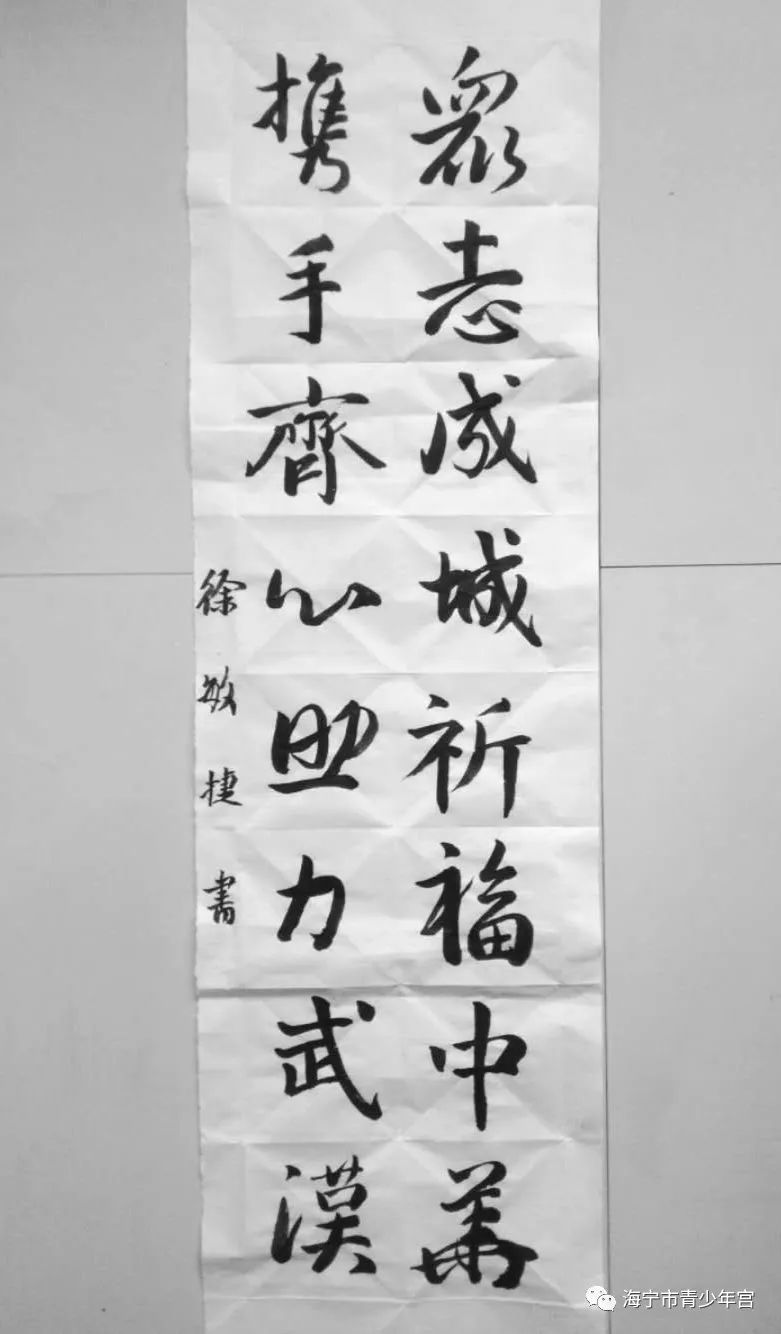 衆志成城祈福中華
携手齊心助力武漢
徐敏捷書
海宁市青少年宫